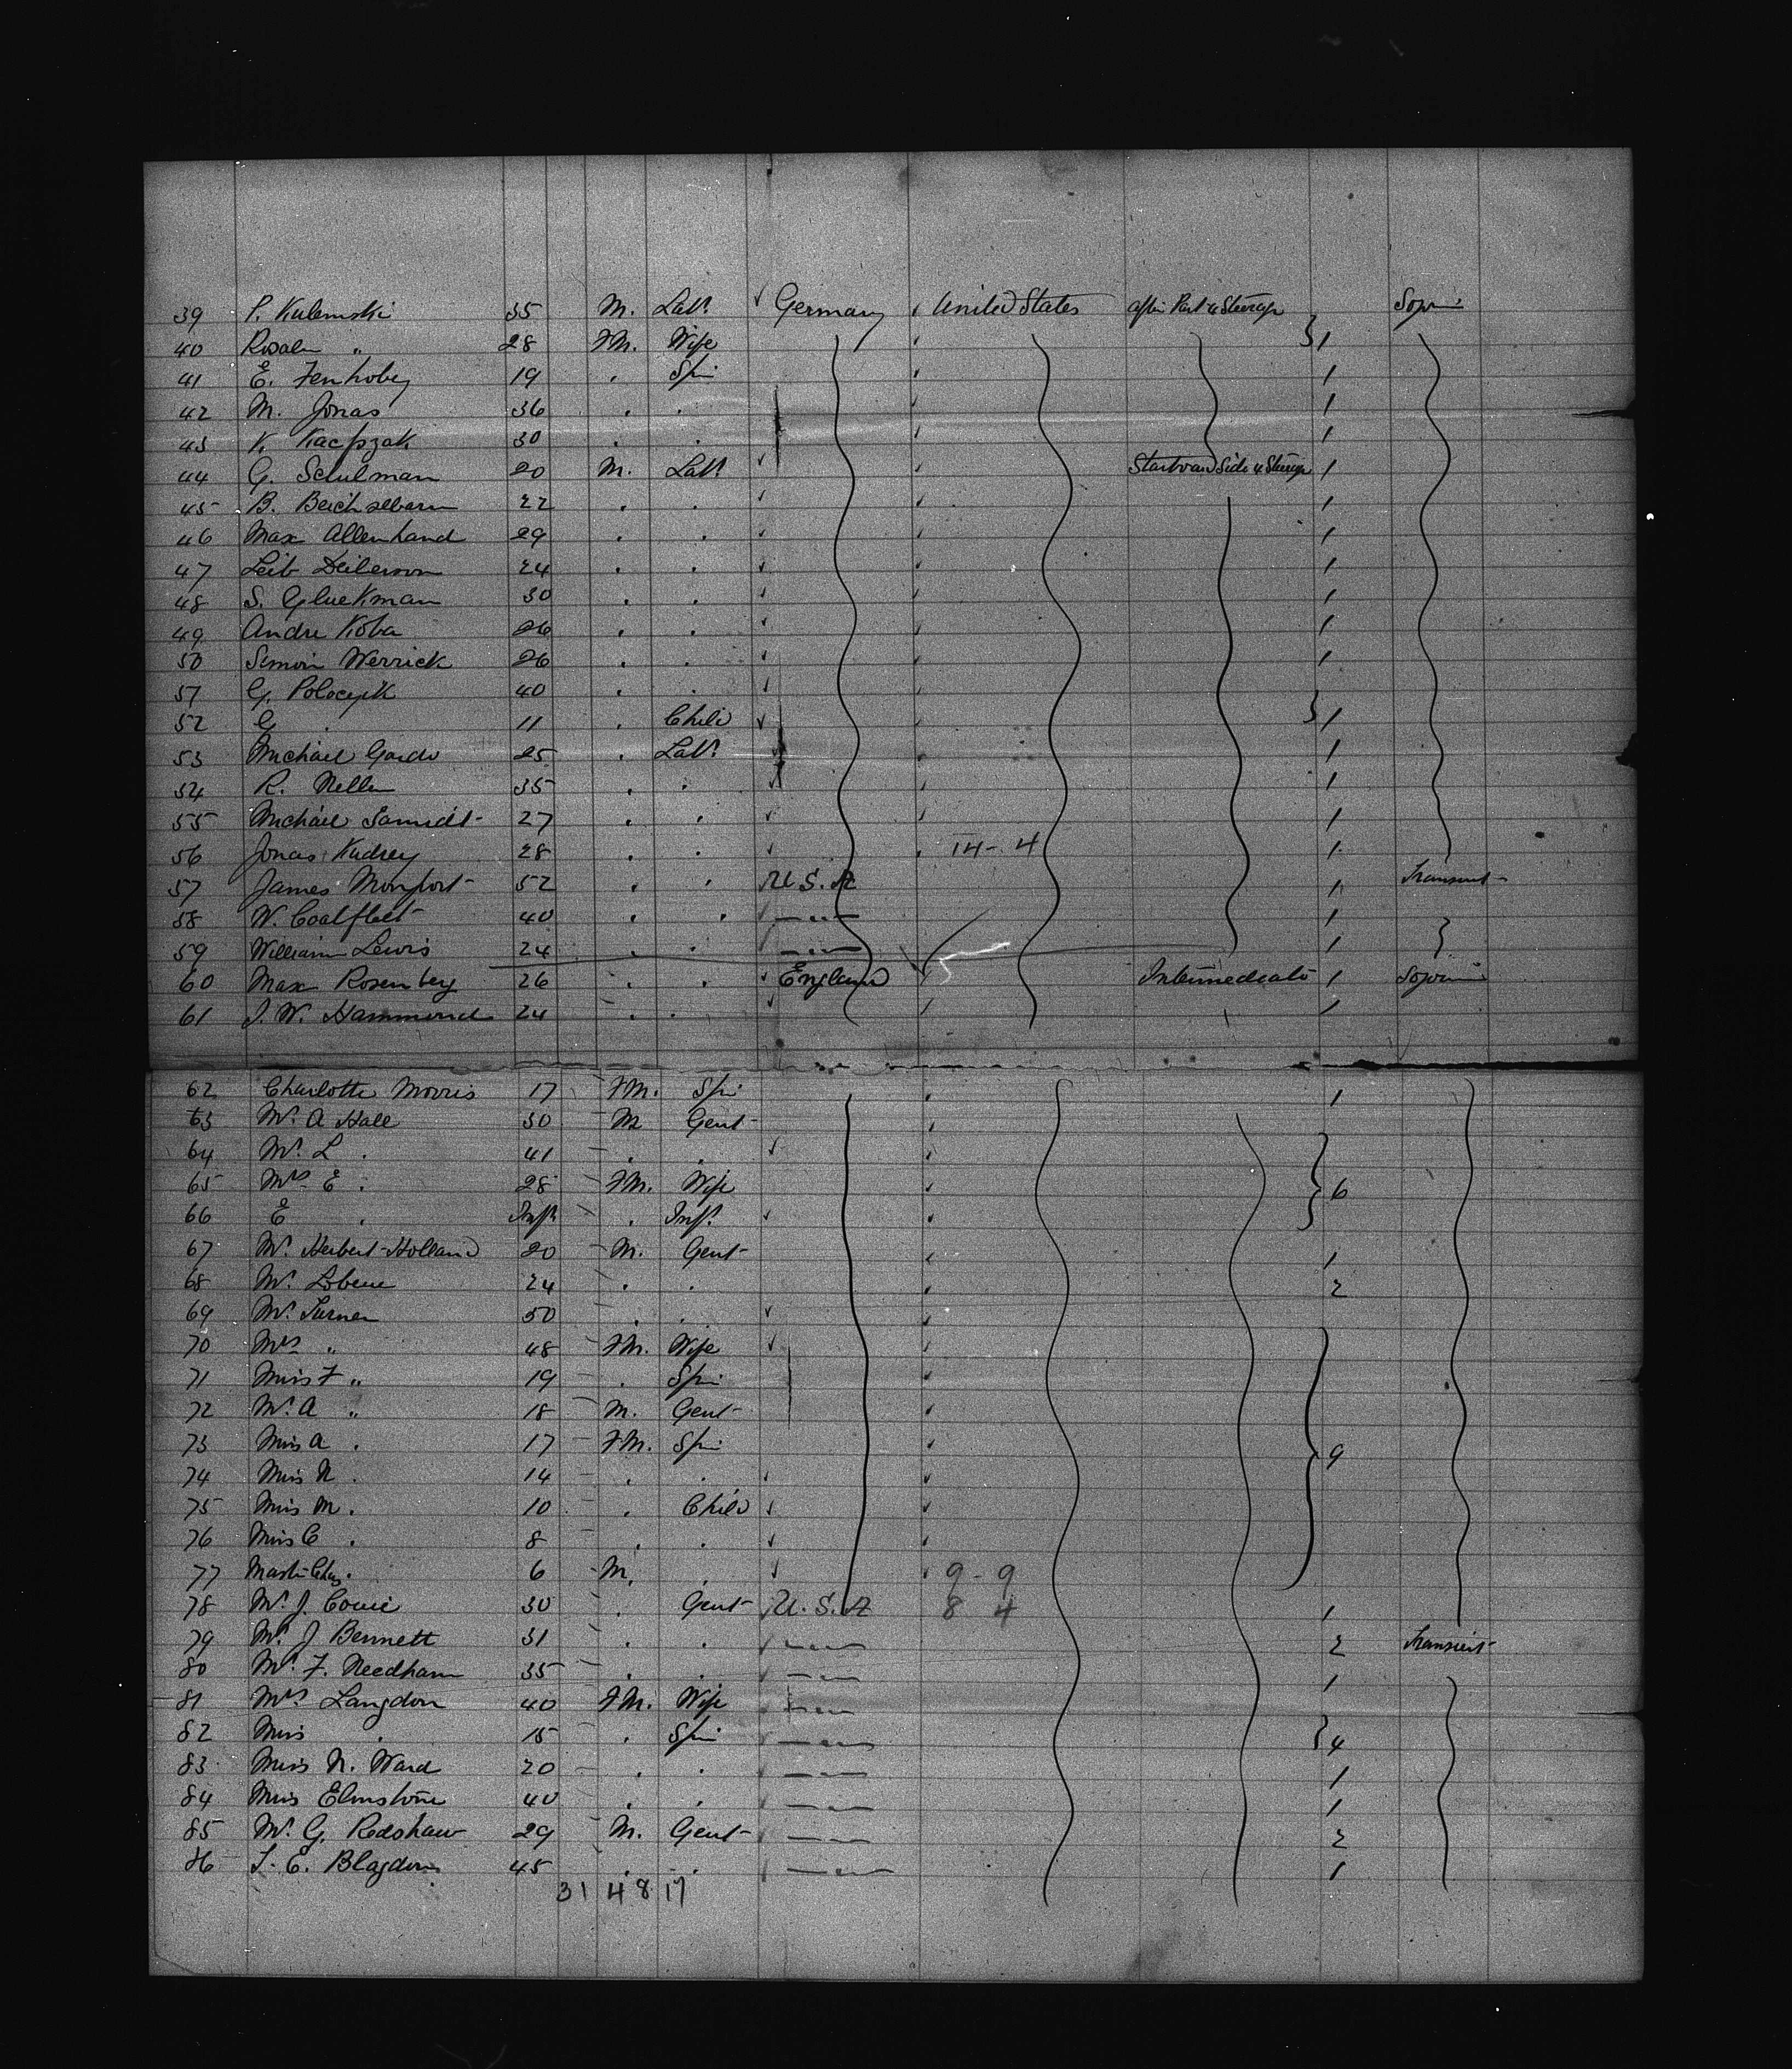 39 P. Kulemski 35 M. Labr Germany United States after Part of Steerage Sojour
40 Rosalie " 28 FM. Wife 1
41 E. 19 . Spi 1
42 M. Jonas 36 . . 1
43 K Kacpzak 30 . . 1
44 G. Schulman 20 M. Labr Starboard Side of Steerage 1
45 B. 22 . . 1
46 Max Allenhand 29 . . 1
47 Leib 24 . . 1
48 S. Glueckman 30 . . 1
49 Andre Koba 26 . . 1
50 Simon Werrick 26 . . 1
51 G. 40 . .
52 G . 11 . Child 1
53 Michael 25 . Labr 1
54 R. 35 . . 1
55 Michael Samidt 27 . . 1
56 Jonas Kudrey 28 . . 14 - 4 1
57 James Monfort 52 . . U.S.A 1 Transient
58 W. Coalfleet 40 . . — " — 1
59 William Lewis 24 . . — " — 1
60 Max Rosenberg 26 . . England Intermediate 1 Sojour
61 J. W. Hammond 24 . . 1
62 Charlotte Morris 17 FM. Spi 1
63 Mr. A Hall 30 M Gent
64 Mr. L . 41 . .
65 Mrs E . 28 FM. Wife 6
66 E . Inft . Inft.
67 Mr. Herbert Holland 20 M. Gent 1
68 Mr. 24 . . 2
69 Mr. Turner 50 . .
70 Mrs " 48 FM. Wife
71 Miss F " 19 . Spi
72 Mr. A " 18 M. Gent
73 Miss A . 17 FM. Spi 9
74 Miss N . 14 . .
75 Miss M . 10 . Child
76 Miss C . 8 . .
77 Mastr Chas . 6 M. . 9 - 9
78 Mr. J. 30 . Gent U.S.A 8 4 1
79 Mr. J Bennett 31 . . — " — 2 Transient
80 Mr. F. Needham 35 . . — " — 1
81 Mrs Langdon 40 FM. Wife — " —
82 Miss . 15 . Spi — " — 4
83 Miss N. Ward 20 . . — " — 1
84 Miss Elmstone 40 . . — " — 1
85 Mr. G. Redshaw 29 M. Gent — " — 2
86 J. E. Blagdon 45 . . — " — 1
31 48 17